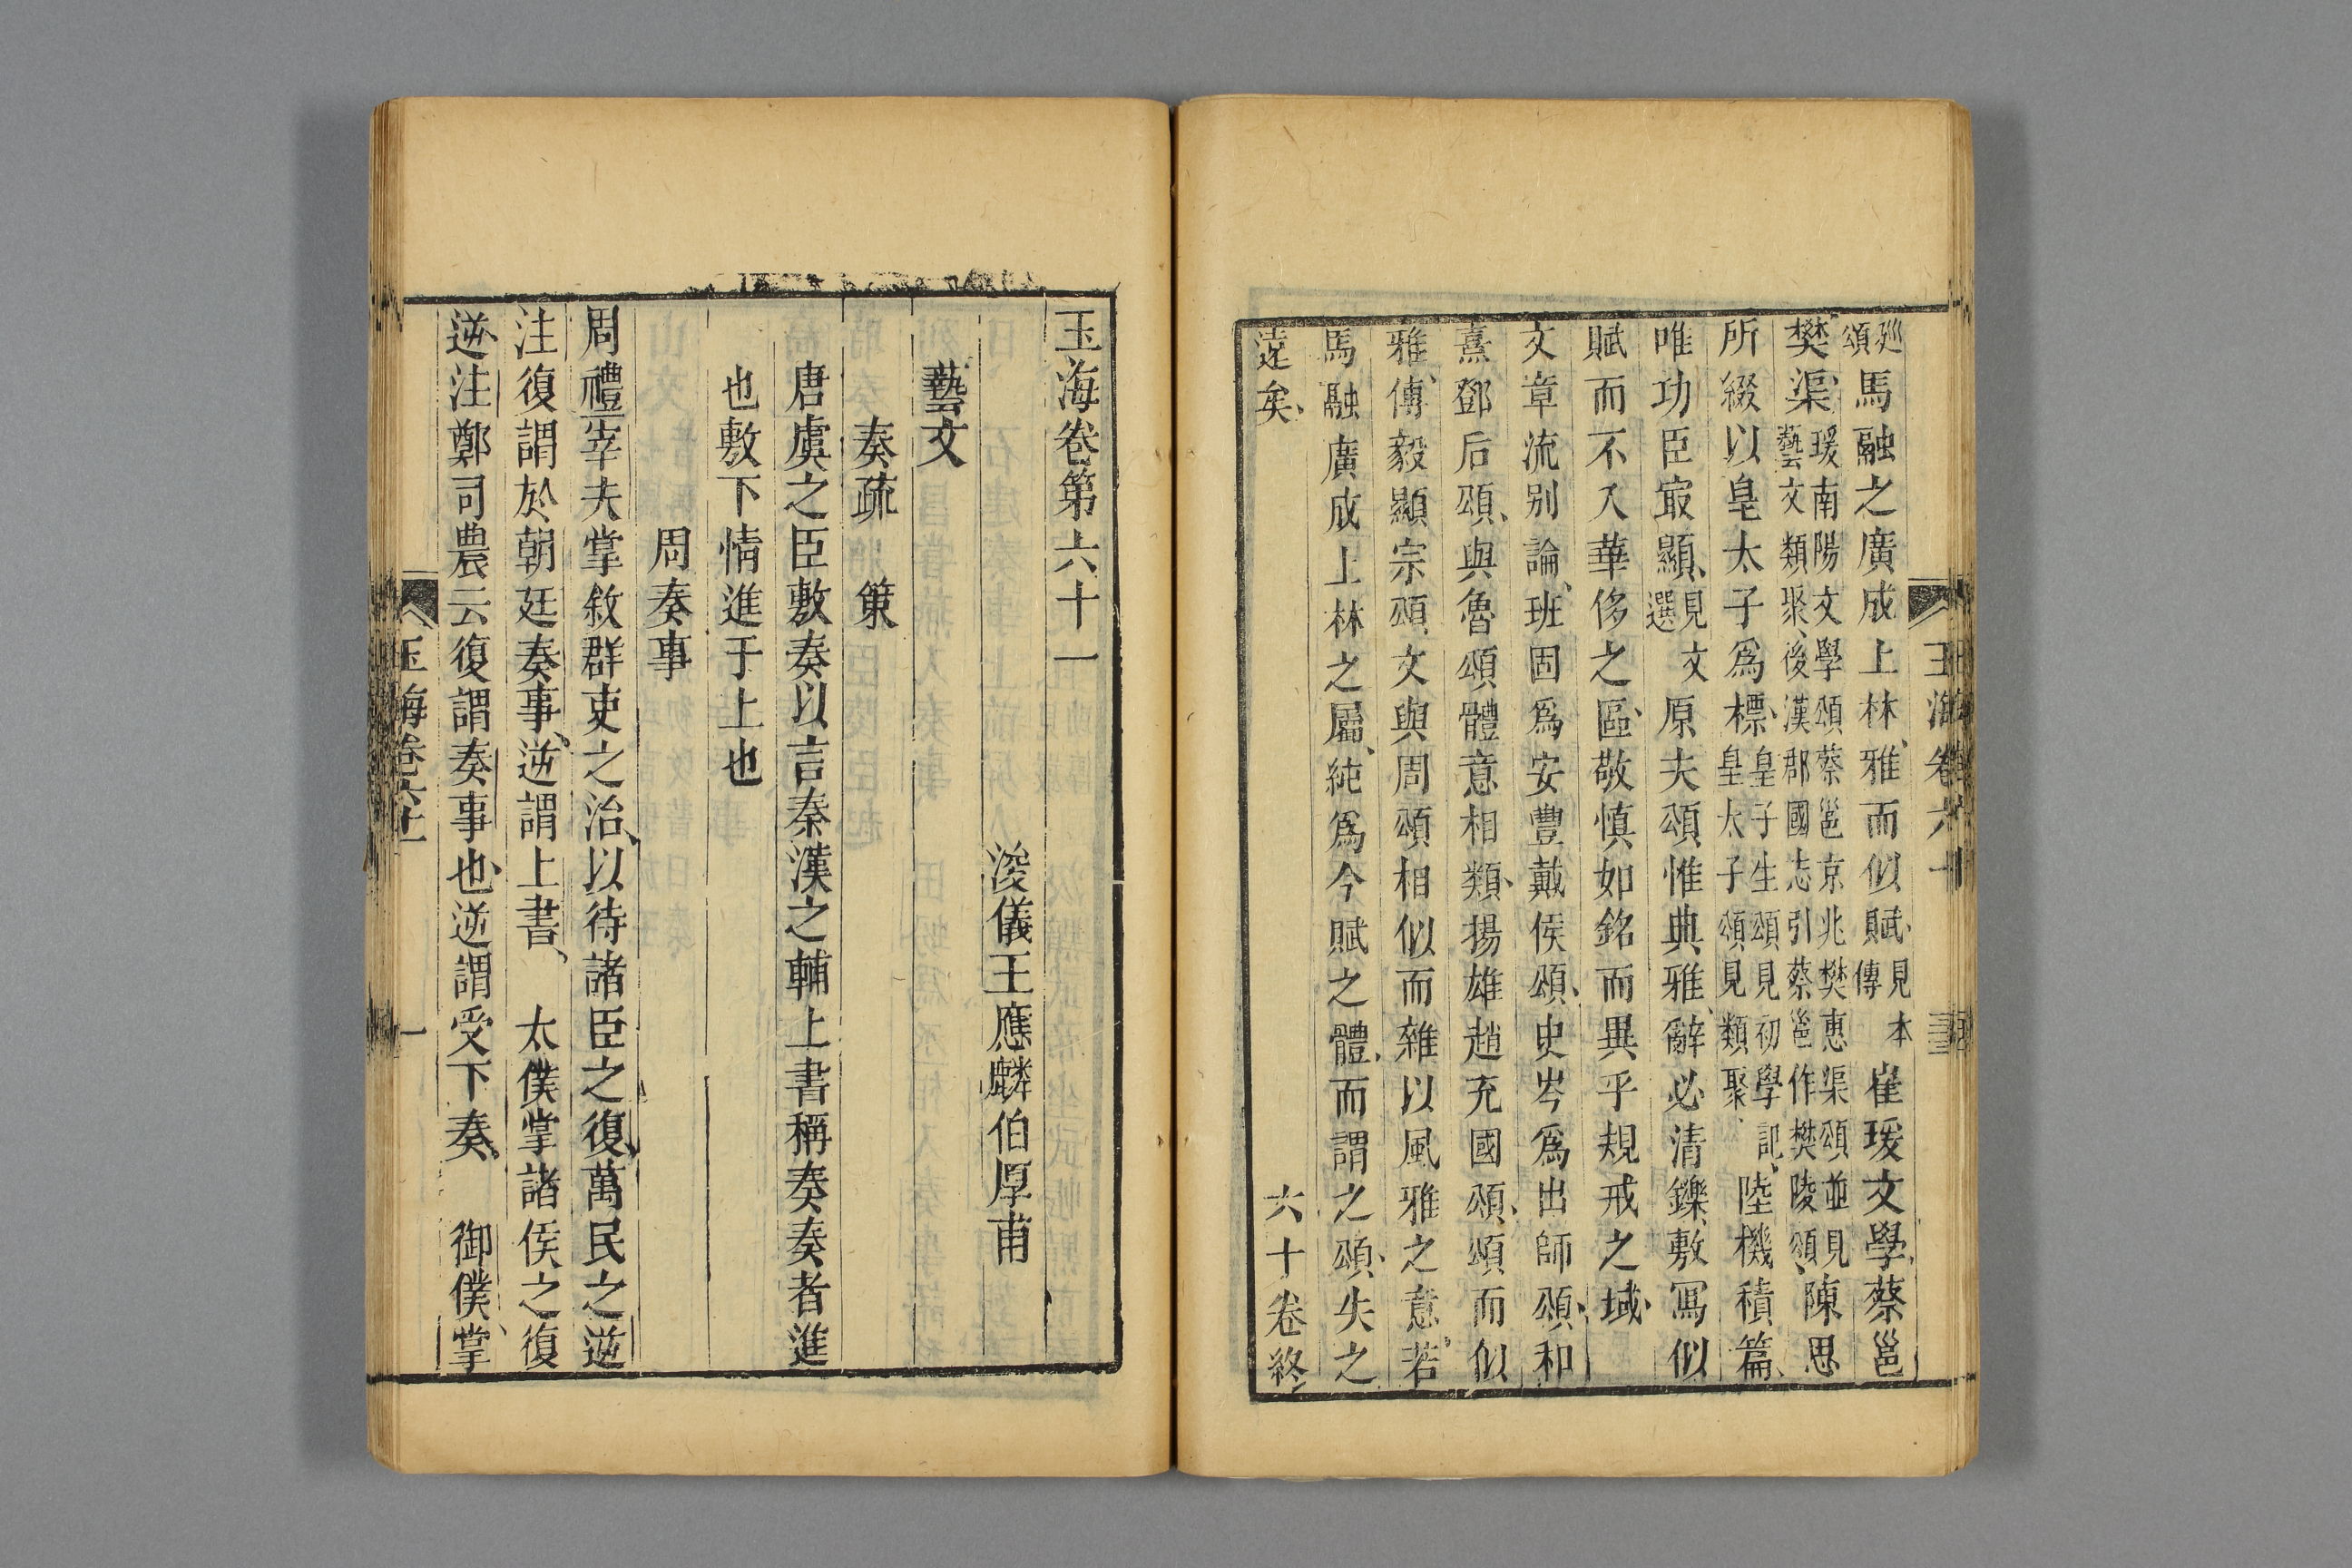 玉海卷六十
巡頌馬融之廣成上林雅而似賦見本傳崔瑗文學蔡邕
樊渠瑗南陽文學頌蔡邕京兆樊惠渠頌並見藝文類聚後漢郡國志引蔡邕作樊陵頌陳思
所綴以皇太子為標皇子生頌見初學記皇太子頌見類聚陸機積篇
唯功臣冣顯見文選原夫頌惟典雅辭必清鑠敷寫似
賦而不入華侈之區敬慎如銘而異乎規戒之域
文章流別論班固為安豐戴侯頌史岑為出師頌和
熹鄧后頌與魯頌體意相類揚雄趙充國頌頌而似
雅傅毅顯宗頌文與周頌相似而雜以風雅之意若
馬融廣成上林之屬純為今賦之體而謂之頌失之
遠矣
六十卷終
玉海卷第六十一
浚儀王應麟伯厚甫
藝文
奏疏 策
唐虞之臣敷奏以言秦漢之輔上書稱奏奏者進
也敷下情進于上也
周奏事
周禮宰夫掌敘群吏之治以待諸臣之復萬民之逆
注復謂於朝廷奏事逆謂上書 太僕掌諸侯之復
逆注鄭司農云復謂奏事也逆謂受下奏 御僕掌
玉海卷六十一
一